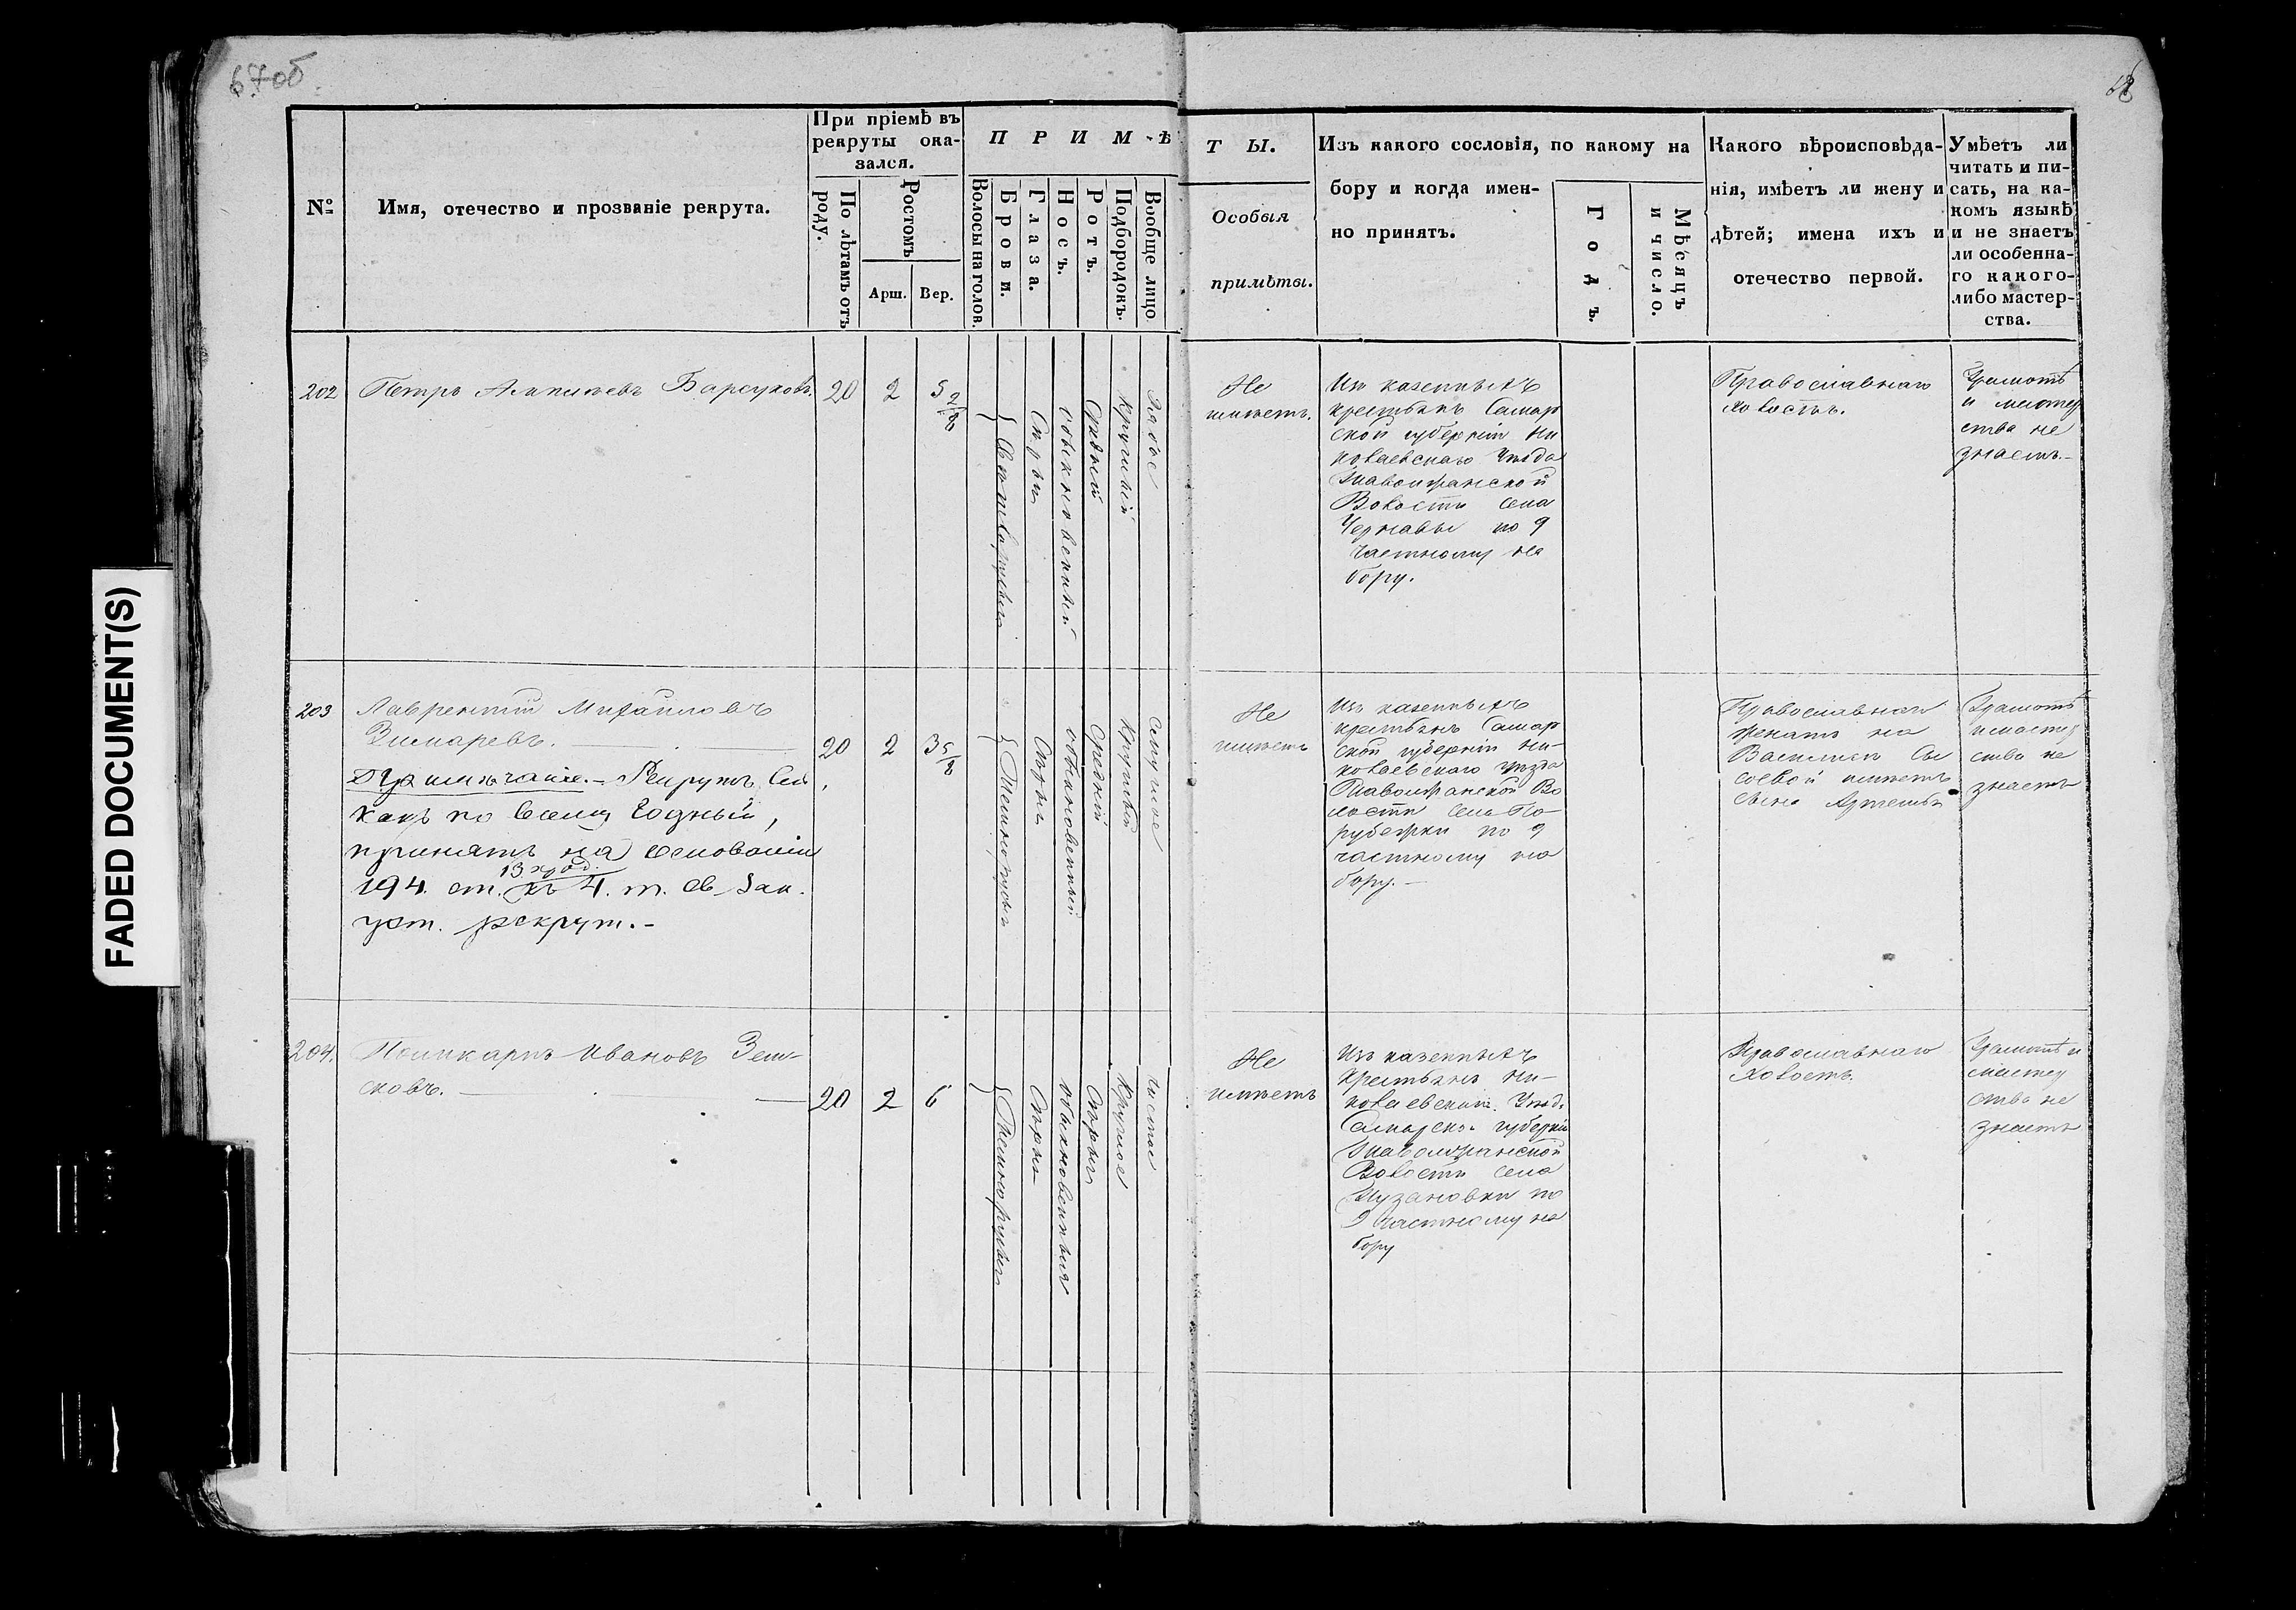 67об
68
FADED DOCUMENT(S)
№
Имя, отечество и прозваніе рекрута.
При пріемѣ въ
рекруты ока-
зался.
По лѣтамъ отъ
роду.
Ростомъ
Арш.
Вер.
ПРИМѢ
Волосы на голов.
Брови.
Глаза.
Носъ.
Ротъ.
Подбородокъ.
Вообще лицо.
ТЫ.
Особыя
примѣты.
Изъ какого сословія, по какому на
бору и когда имен-
но принятъ.
Годъ.
Мѣсяцъ
и число.
Какого вѣроисповѣда-
нія, имѣетъ ли жену и
дѣтей; имена ихъ и
отечество первой.
Умѣетъ ли
читать и пи-
сать, на ка-
комъ языкѣ
и не знаетъ
ли особенна-
го какого-
либо мастер-
ства.
202
Петръ Барсуковъ.
20
2
5 2/8
Свѣтлорусыя
Сѣрыя
обыкновенный
Средній
Круглый
Рябое
Не
имѣетъ.
Изъ казенныхъ
крестьянъ Самар
ской губерніи Ни
колаевскаго Уѣзда
Волости села
Чернавы по 9
частному на
бору.
Православнаго
холостъ.
Грамотѣ
и мастер
ства не
знаетъ.-
203
Лаврентій Михайловъ
Зинаревъ.
Примѣчаніе.- Рекрутъ Сей,
какъ по всему Годный,
принятъ на основаніи
13 прод.
194. ст. къ 4. т. Св. Зак.
уст. рекрут.-
20
2
3 5/8
Темнорусыя
Сѣрыя
обыкновенный
Средній
Круглый
Смуглое
Не
имѣетъ
Изъ казенныхъ
крестьянъ Самар
ской губерніи Ни-
колаевскаго Уѣзда
Во
лости села По-
рубежки по 9
частному на
бору.-
Православнаго
женатъ на
имѣетъ
сына Артемья
Грамотѣ
и мастер
ства не
знаетъ
204.
Поликарпъ Ивановъ Зем-
сковъ.
20
2
6
Темнорусыя
Сѣрыя
обыкновенныя
Круглое
чистое
Не
имѣетъ
Изъ казенныхъ
Крестьянъ Ни-
колаевскаго Уѣзд.
Самарской губерніи
Волости села
Пузановки по
9 частному на
бору
Православнаго
Холостъ.
Грамотѣ и
мастер
ства не
знаетъ